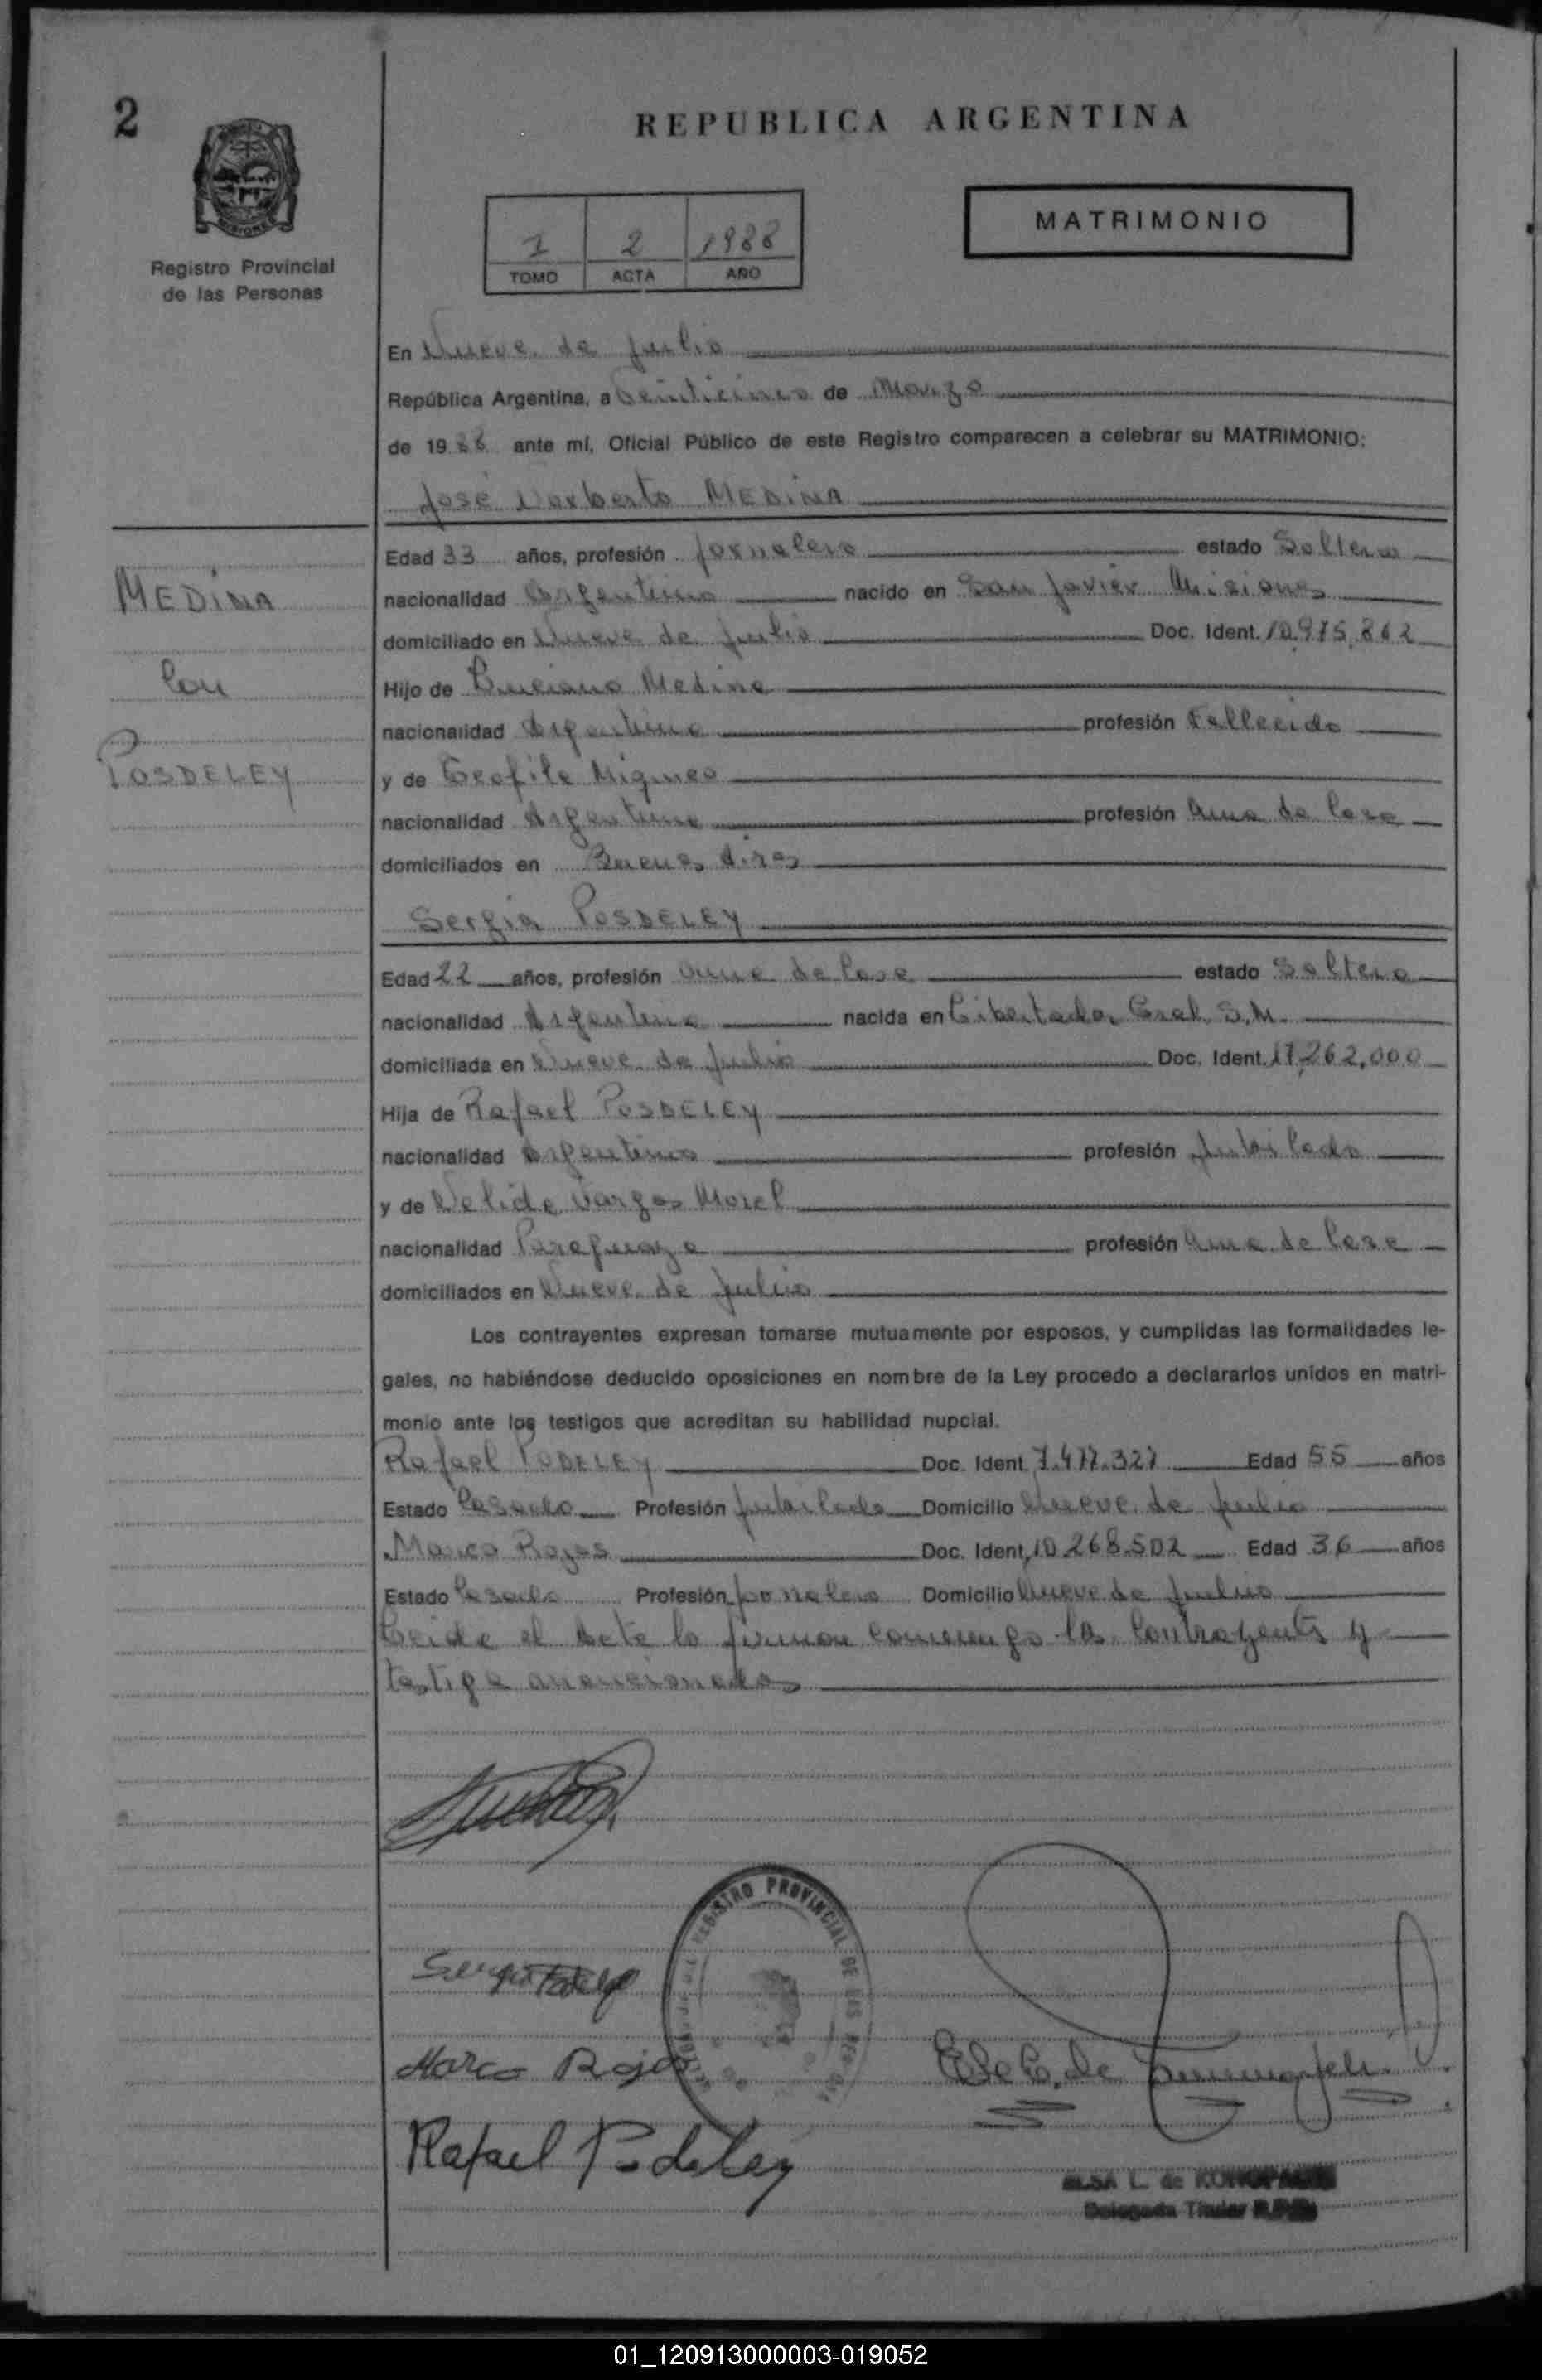 2
REPUBLICA ARGENTINA
MISIONES
Registro Provincial
de las Personas
1 2 1988
TOMO ACTA AÑO
MATRIMONIO
En Nueve de Julio
República Argentina, a Veinticinco de Marzo
de 1988 ante mí, Oficial Público de este Registro comparecen a celebrar su MATRIMONIO:
José Norberto MEDINA
MEDINA
Con
POSDELEY
Edad 33 años, profesión Jornalero estado Soltero
nacionalidad Argentino nacido en San Javier Misiones
domiciliado en Nueve de Julio Doc. Ident. 10.975.862
Hijo de Luciano Medina
nacionalidad Argentino profesión Fallecido
y de Teofila
nacionalidad Argentina profesión Ama de Casa
domiciliados en Buenos Aires
Sergia POSDELEY
Edad 22 años, profesión Ama de Casa estado Soltera
nacionalidad Argentina nacida en Libertador Gral. S.M.
domiciliada en Nueve de Julio Doc. Ident. 17.262.000
Hija de Rafael POSDELEY
nacionalidad Argentino profesión Jubilado
y de Nelida Vargas Morel
nacionalidad Paraguaya profesión Ama de Casa
domiciliados en Nueve de Julio
Los contrayentes expresan tomarse mutuamente por esposos, y cumplidas las formalidades le-
gales, no habiéndose deducido oposiciones en nombre de la Ley procedo a declararlos unidos en matri-
monio ante los testigos que acreditan su habilidad nupcial.
Rafael PODELEY Doc. Ident. 7.477.327 Edad 55 años
Estado Casado Profesión Jubilado Domicilio Nueve de Julio
Marco Rojas Doc. Ident. 10.268.502 Edad 36 años
Estado Casado Profesión Jornalero Domicilio Nueve de Julio
Leida el Acta la firman conmigo los Contrayentes y
testigo
REGISTRO PROVINCIAL DE LAS PERSONAS
Marco Rojas
Rafael Podeley
ELSA L. de
Delegada Titular
01_120913000003-019052